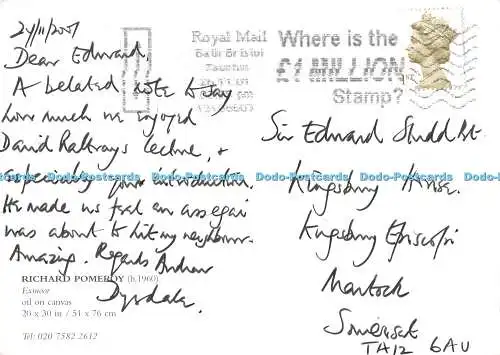 24/11/2001
Dear Edward,
A belated note to say
how much we enjoyed
David Rattrays lecture, &
especially your introduction.
He made us feel an assegai
was about to hit my neighbour.
Amazing. Regards Andrew
RICHARD POMEROY (b.1960)
Exmoor
oil on canvas
20 x 30 in / 51 x 76 cm
Tel: 020 7582 2612
Royal Mail
Bath Bristol
Taunton
Where is the
£1 MILLION
Stamp?
Sir Edward Studd Bt.
Kingsbury House.
Kingsbury Episcopi
Martock
Somerset
TA12 6AU
Dodo-Postcards Dodo-Postcards Dodo-Postcards Dodo-Postcards Dodo-Postcards Dodo-Postcards